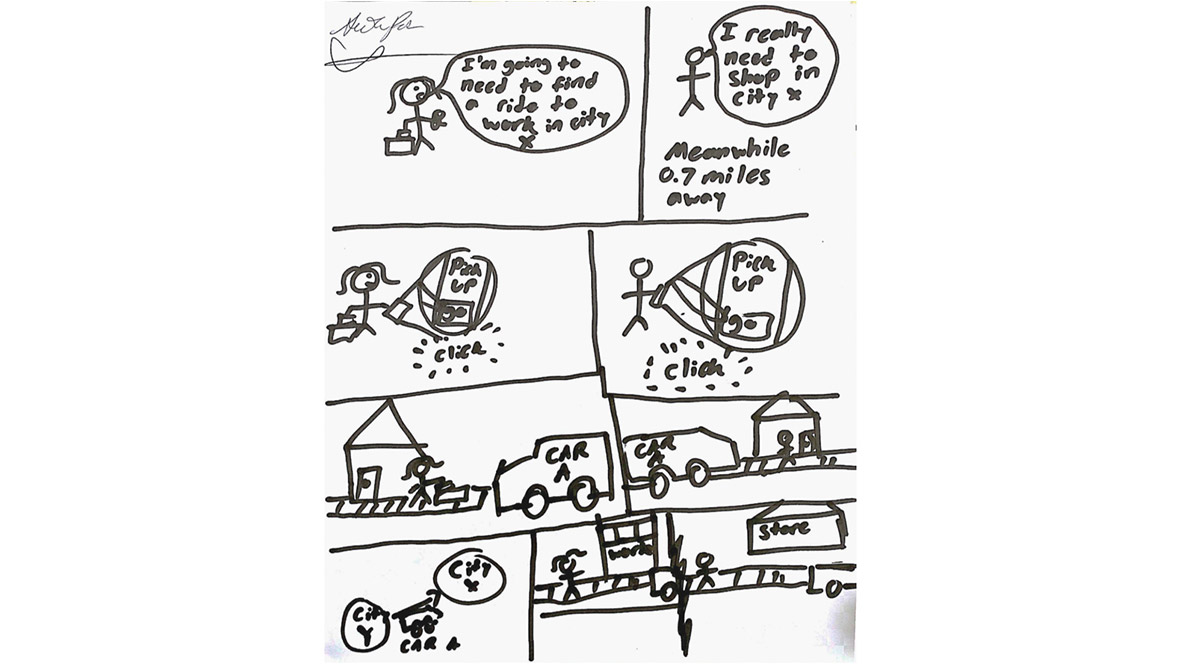 I'm going to
need to find
a ride to
work in city
x
I really
need to
shop in
city x
Meanwhile
0.7 miles
away
Pick
up
go
click
Pick
up
go
Click
CAR
A
CAR
A
City
X
City
Y
CAR A
work
Store